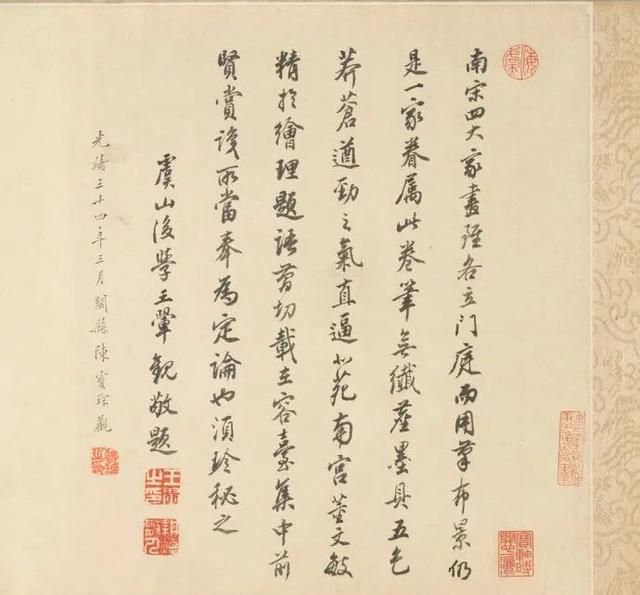 南宋四大家畫雖各立門庭而用筆布景仍
是一家眷屬此卷筆無纖塵墨具五色
莽蒼遒勁之氣直逼北苑南宮董文敏
精於繪理題語切載在容臺集中前
賢賞識所當奉為定論也須珍秘之
虞山後學王翬觀敬題
王翬之印
光緒三十四年三月閩縣陳寶琛觀